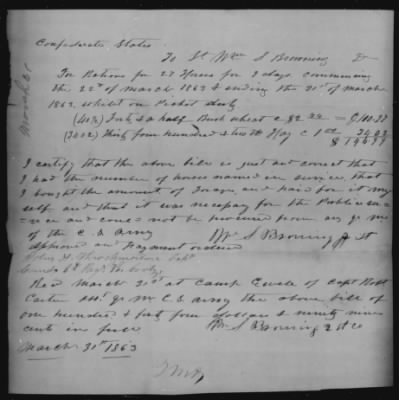 Confederate States
To Lt Wm S Browning Dr
For Rations for 27 Horses for 3 days commencing
the 22nd of March 1863 & ending the 31st of March
1863 whilst on Picket duty
(40½) Forty & a half Bush wheat @ $2
(3402) Thirty four hundred & two lb Hay @ 1 34.02
I certify that the above bill is just and correct that
I had the number of horses named in service, that
I bought the amount of forage, and paid for it my
self and that it was necessary for the Public ser-
vice and could not be procured from any qr mr
of the C. S. Army
Wm S Browning Lt
Approved and Payment ordered
John Throckmorton
6th Regt Va Cavlry
Recd March 31st at Camp of Capt Robt
Carter qr mr C. S. Army the above bill of
one hundred & forty four dollars & ninety nine
cents in full
Wm S Browning 2 Lt Co
March 31st 1863